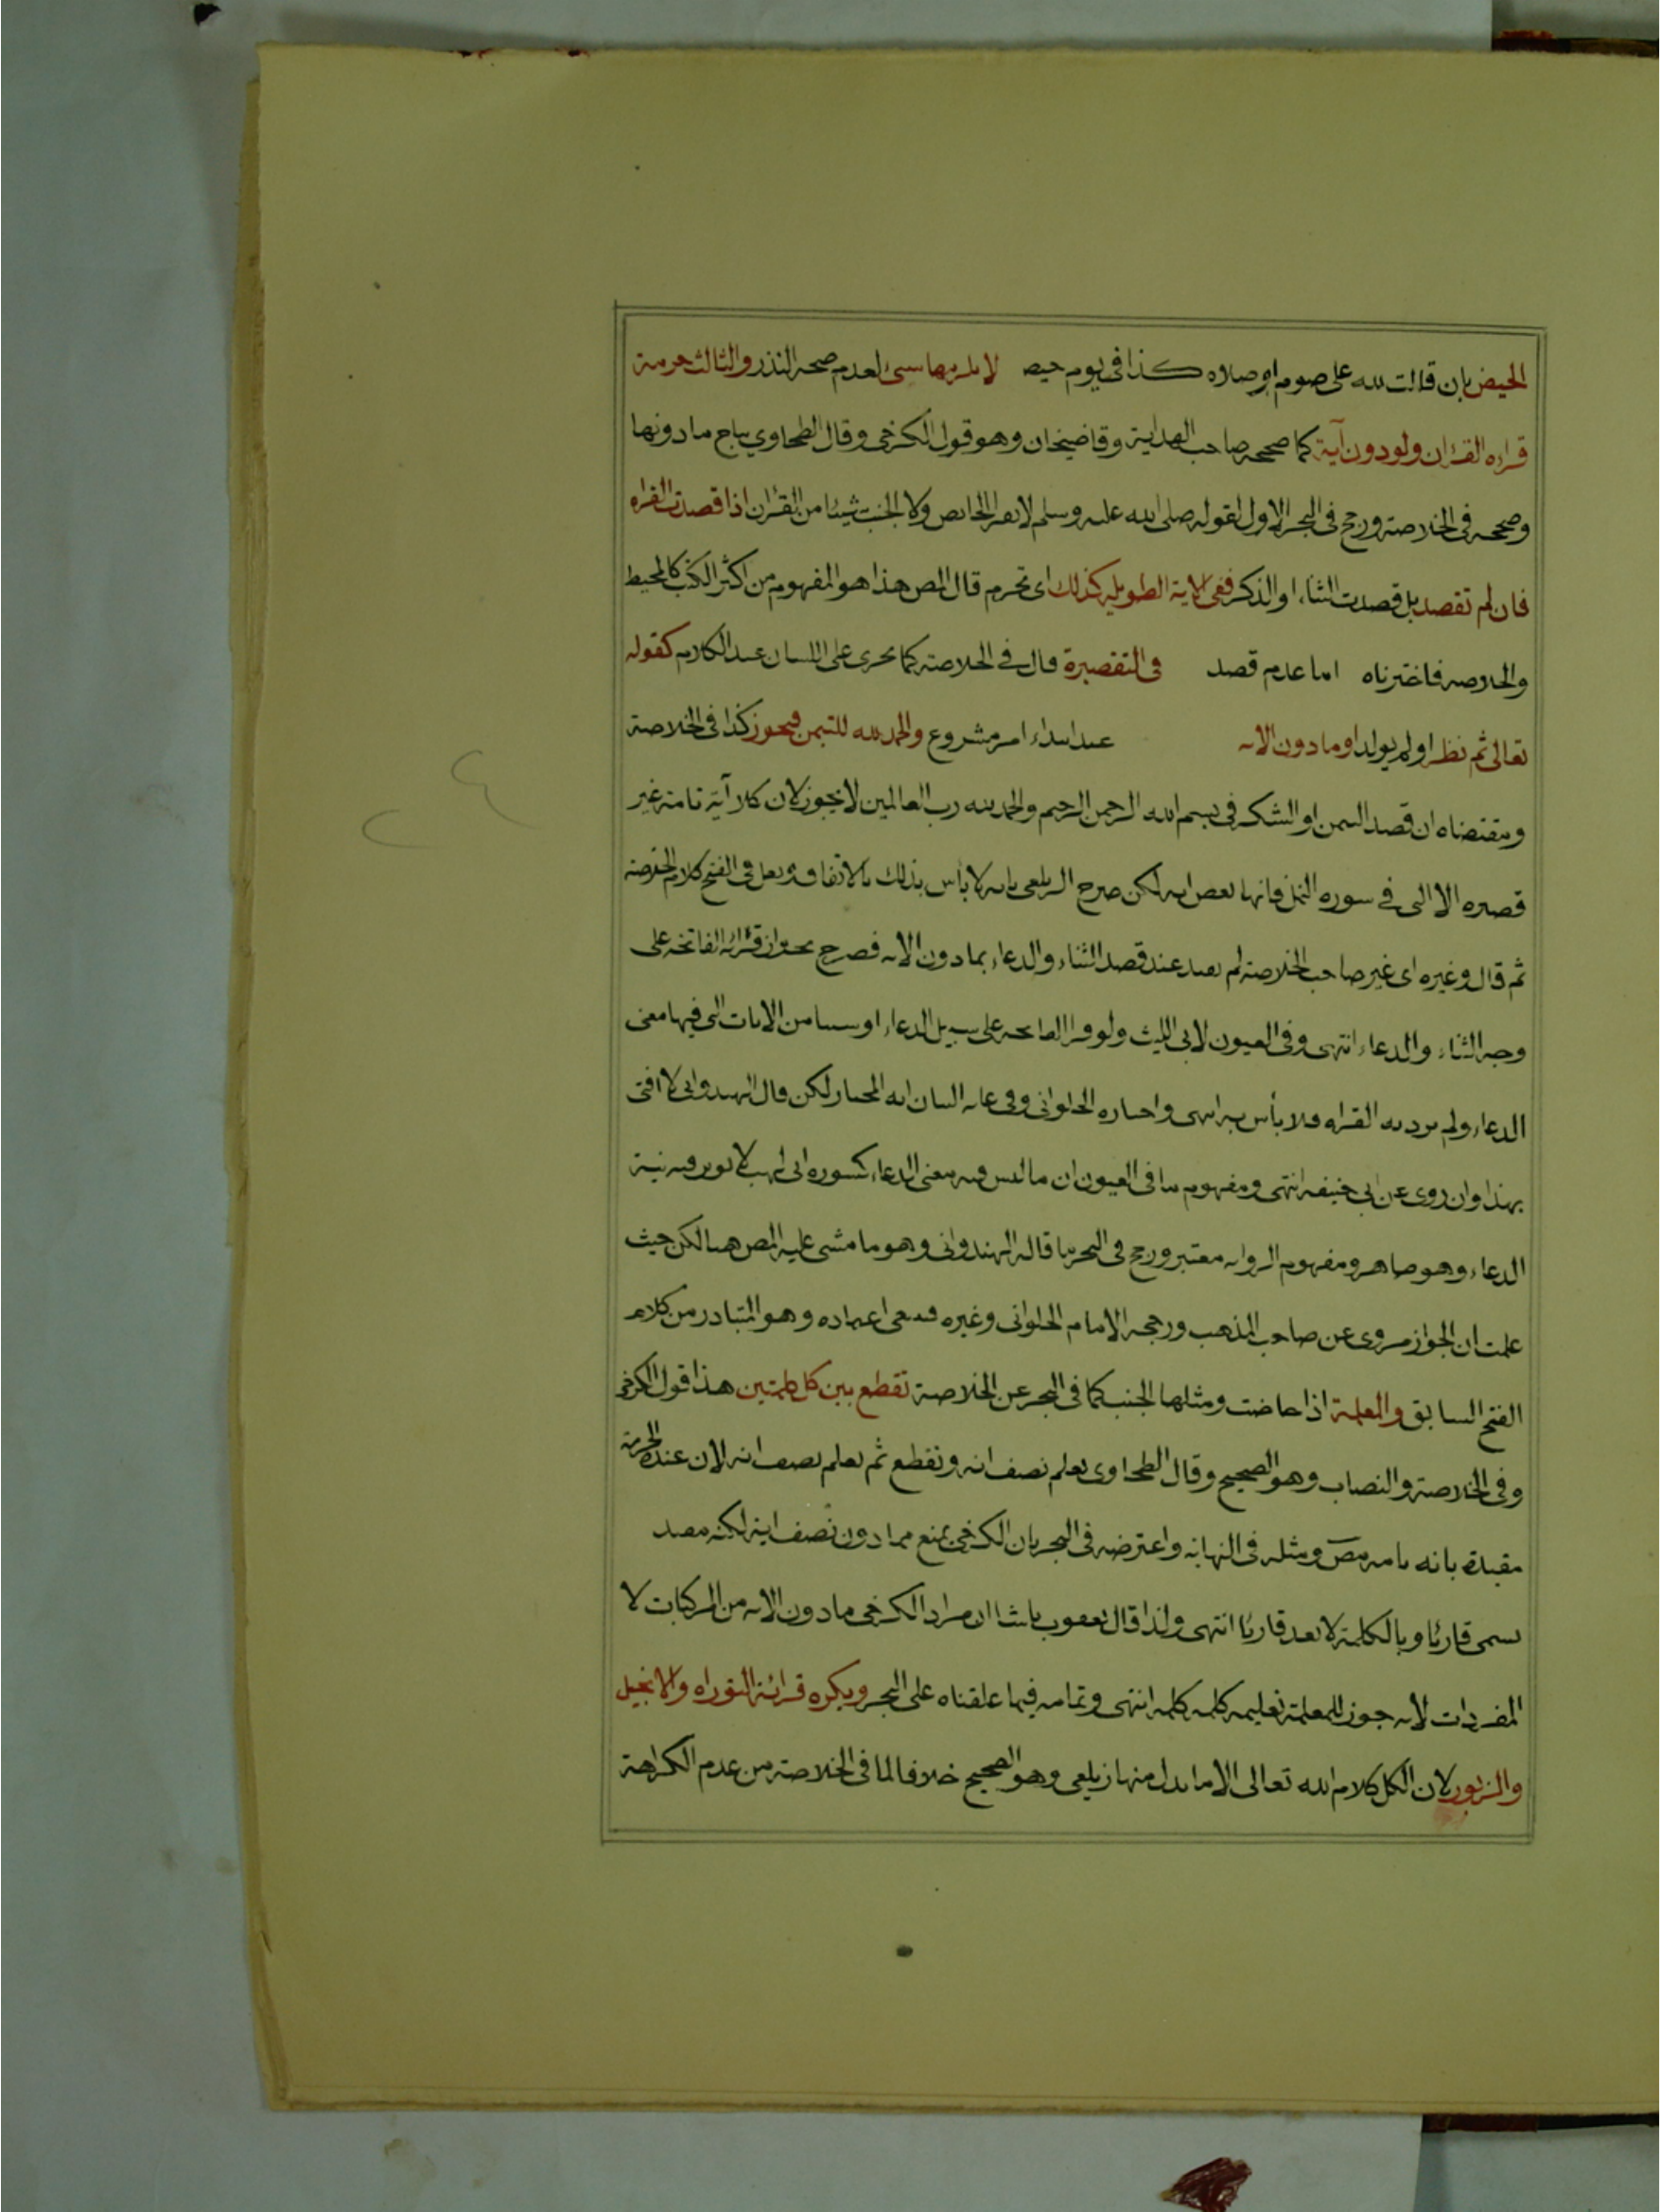 الحيض بان قالت لله على صوم او صلاه كذا فى يوم حيض لا يلزمها سىء لعدم صحه النذر والثالث حرمة
قراءه القرٰان ولو دون آية كما صححه صاحب الهداية وقاضيخان وهو قول الكرخى وقال الطحاوي يباح ما دونها
وصححه فى الخلاصة ورجح فى البحر الاول لقوله صلى الله عليه وسلم لا يقرا الحايض ولا الجنب شيئا من القرٰان اذا قصدت القراه
فان لم تقصد بل قصدت الثناء او الذكر ففى الاية الطويلة كذلك اى تحرم قال المص هذا هو المفهوم من اكثر الكتب كالمحيط
والخلاصه فاخترناه اما عدم قصد فى القصيرة قال فے الخلاصة كما يجرى على اللسان عند الكلام كقوله
تعالى ثم نظر او لم يولد او ما دون الايه عند ابتداء امر مشروع والحمد لله للتيمن فيجوز كذا فى الخلاصة
ومقتضاه ان قصد التيمن او الشكر فى بسم الله الرحمن الرحيم والحمد لله رب العالمين لا يجوز لان كلا آية تامة غير
قصيره الا التى فے سوره النمل فانها بعض ايه لكن صرح الزيلعى بانه لا بأس بذلك بالاتفاق ونقل فى الفتح كلام الخلاصة
ثم قال وغيره اى غير صاحب الخلاصة لم يقيد عند قصد الثناء والدعاء بما دون الايه فصرح بجواز قرائة الفاتحة على
وجه الثناء والدعاء انتهى وفى العيون لابى الليث ولو قرا الفاتحه على سبيل الدعاء او شيئا من الايات التى فيها معنى
الدعاء ولم يرد به القراه فلا بأس به انتهى واختاره الحلوانى وفى غايه البيان انه المختار لكن قال الهندوانى لا افتى
بهذا وان روى عن ابى حنيفه انتهى ومفهوم ما فى العيون ان ما ليس فيه معنى الدعاء كسوره ابى لهب لا يوثر فيه نية
الدعاء وهو ظاهر ومفهوم الروايه معتبر ورجح فى البحر ما قاله الهندوانى وهو ما مشى عليه المص هنا لكن حيث
علمت ان الجواز مروى عن صاحب المذهب ورجحه الامام الحلوانى وغيره فينبغى اعتماده وهو المتبادر من كلام
الفتح السابق والمعلمة اذا حاضت ومثلها الجنب كما فى البحر عن الخلاصة تقطع بين كل كلمتين هذا قول الكرخى
وفى الخلاصة والنصاب وهو الصحيح وقال الطحاوى تعلم نصف اية وتقطع ثم تعلم نصف اية لان عنده الحرمة
مقيدة باية تامه نص ومثله فى النهاية واعترضه فى البحر بان الكرخى يمنع مما دون نصف اية لكنه مقيد
يسمى قارئا وبالكلمة لا يعد قاريا انتهى ولذا قال يعقوب باشا ان مراد الكرخى ما دون الايه من المركبات لا
المفردات لانه جوز للمعلمة تعليمه كلمه كلمه انتهى وتمامه فيما علقناه على البحر ويكره قرائة التوراه والانجيل
والزبور لان الكل كلام الله تعالى الا ما بدل منها زيلعى وهو الصحيح خلافا لما فى الخلاصة من عدم الكراهة